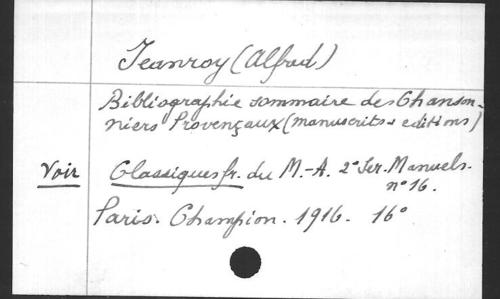 Jeanroy (Alfred)
Bibliographie sommaire des Chanson-
niers Provençaux (manuscrits & editions)
Voir Classiques fr. du M.-A. 2e Ser. Manuels.
n° 16.
Paris. Champion. 1916. 16°